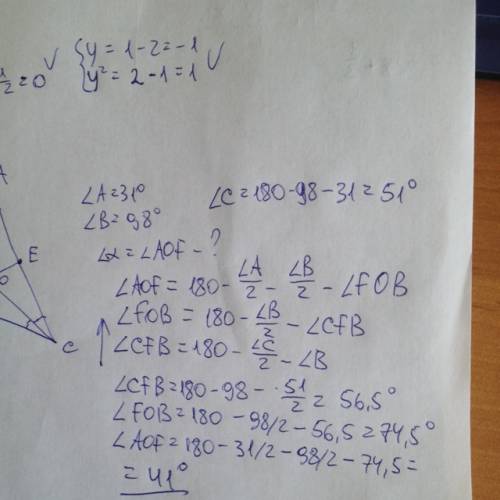 1/2 = 0 V
{ y = 1 - 2 = -1
{ y² = 2 - 1 = 1 V
A
E
O
C
∠A = 31°
∠B = 98°
∠C = 180 - 98 - 31 = 51°
∠α = ∠AOF - ?
∠AOF = 180 - ∠A/2 - ∠B/2 - ∠FOB
∠FOB = 180 - ∠B/2 - ∠CfB
∠CfB = 180 - ∠C/2 - ∠B
∠CfB = 180 - 98 - 51/2 = 56,5°
∠FOB = 180 - 98/2 - 56,5 = 74,5°
∠AOF = 180 - 31/2 - 98/2 - 74,5 =
= 41°